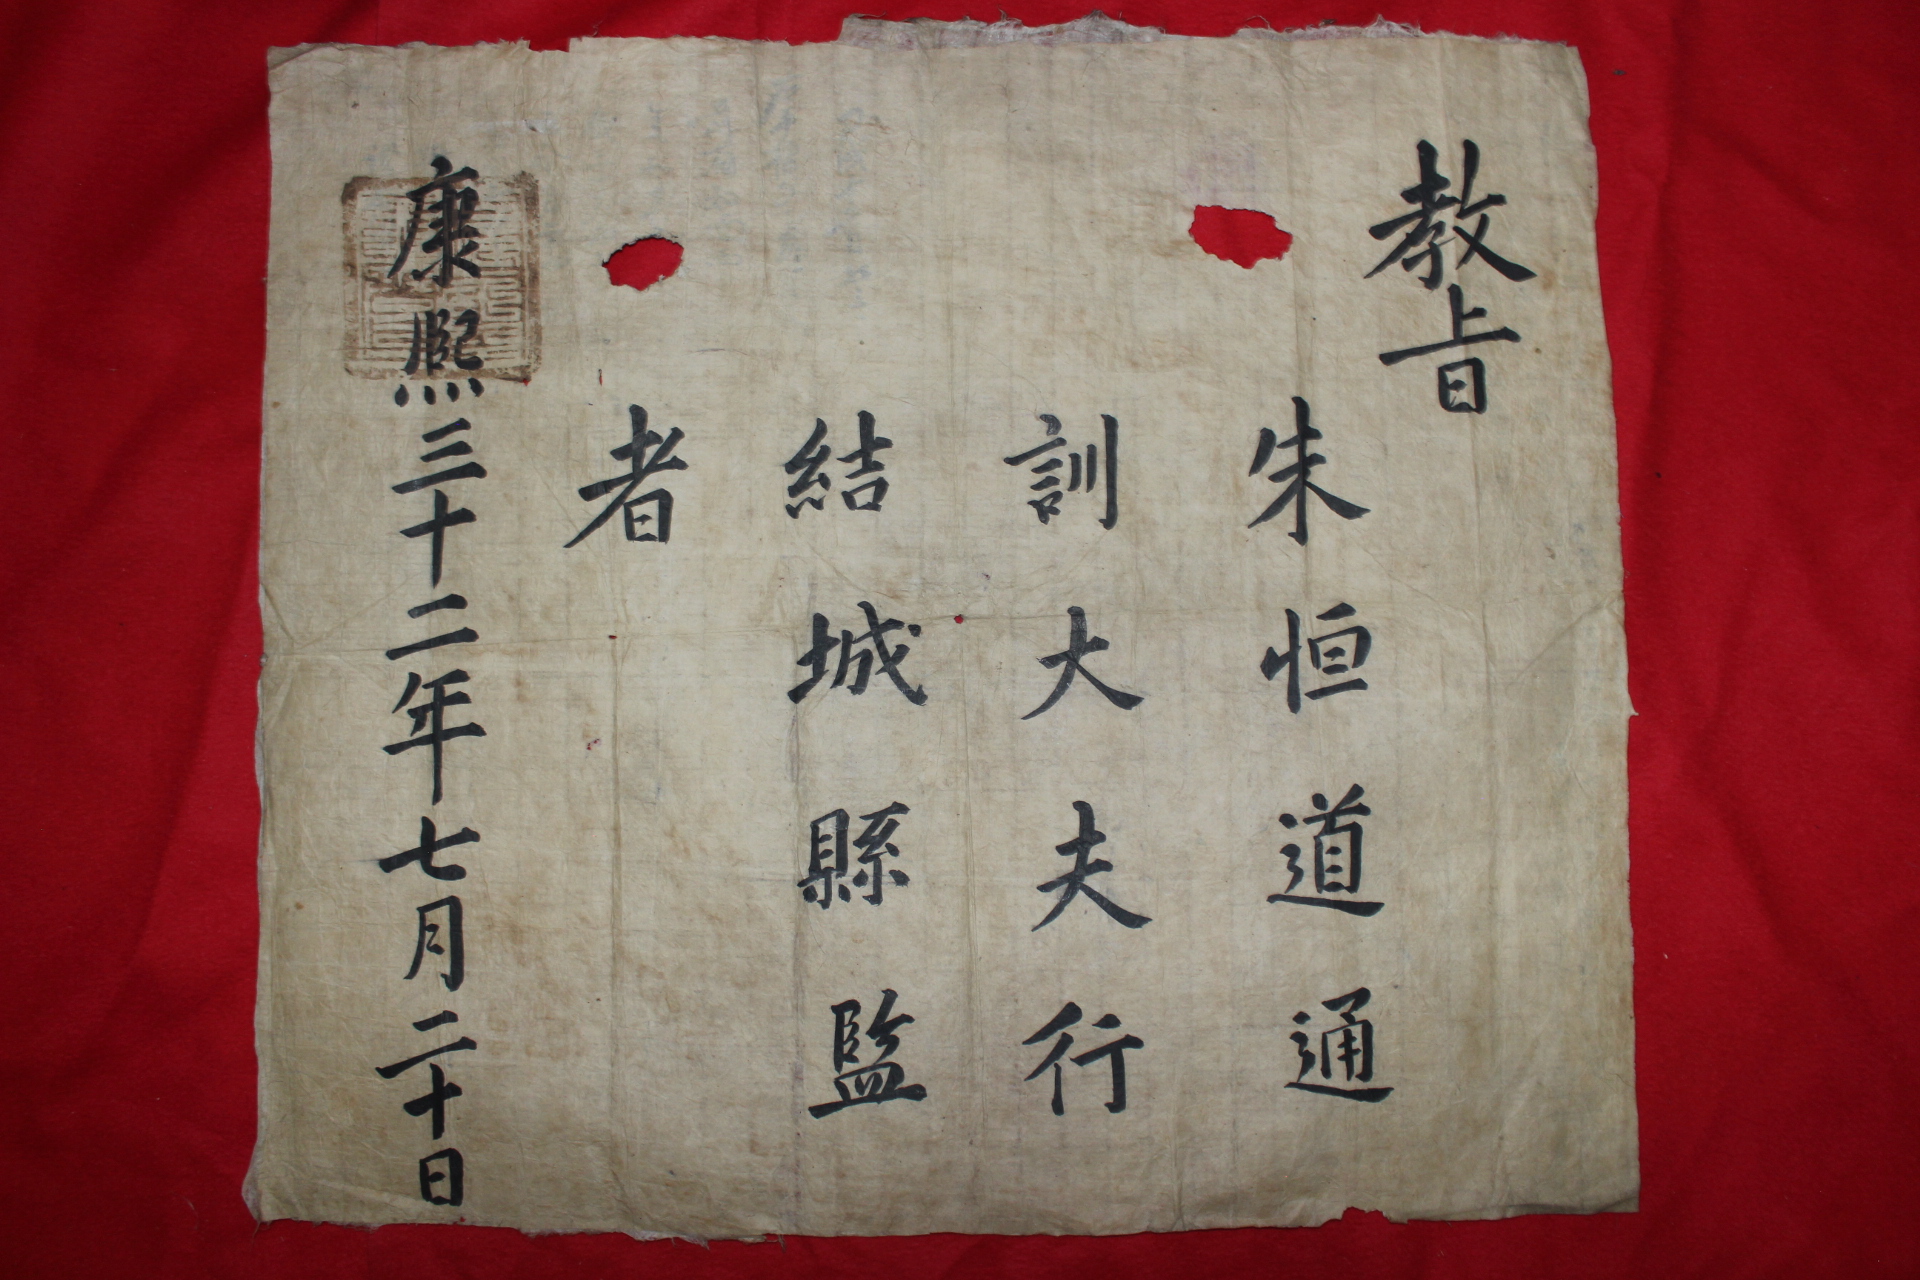 教旨
朱恒道通
訓大夫行
結城縣監
者
康熙三十二年七月二十日